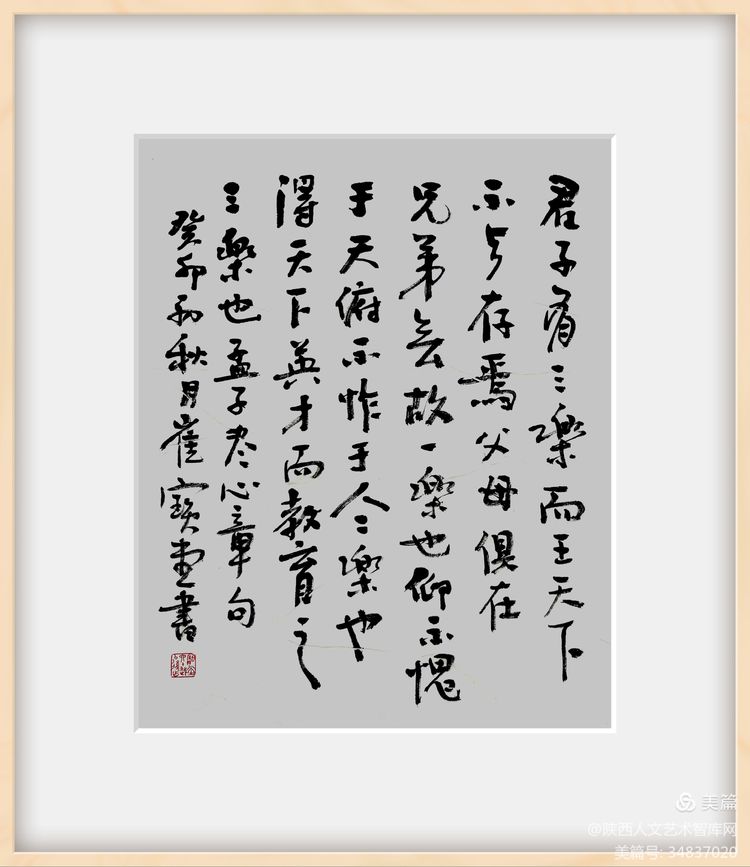 君子有三樂而王天下
不与存焉父母俱在
兄弟無故一樂也仰不愧
于天俯不怍于人二樂也
得天下英才而教育之
三樂也孟子尽心章句
癸卯初秋月崔寶堂書
美篇
@陕西人文艺术智库网
美篇号: 34837020